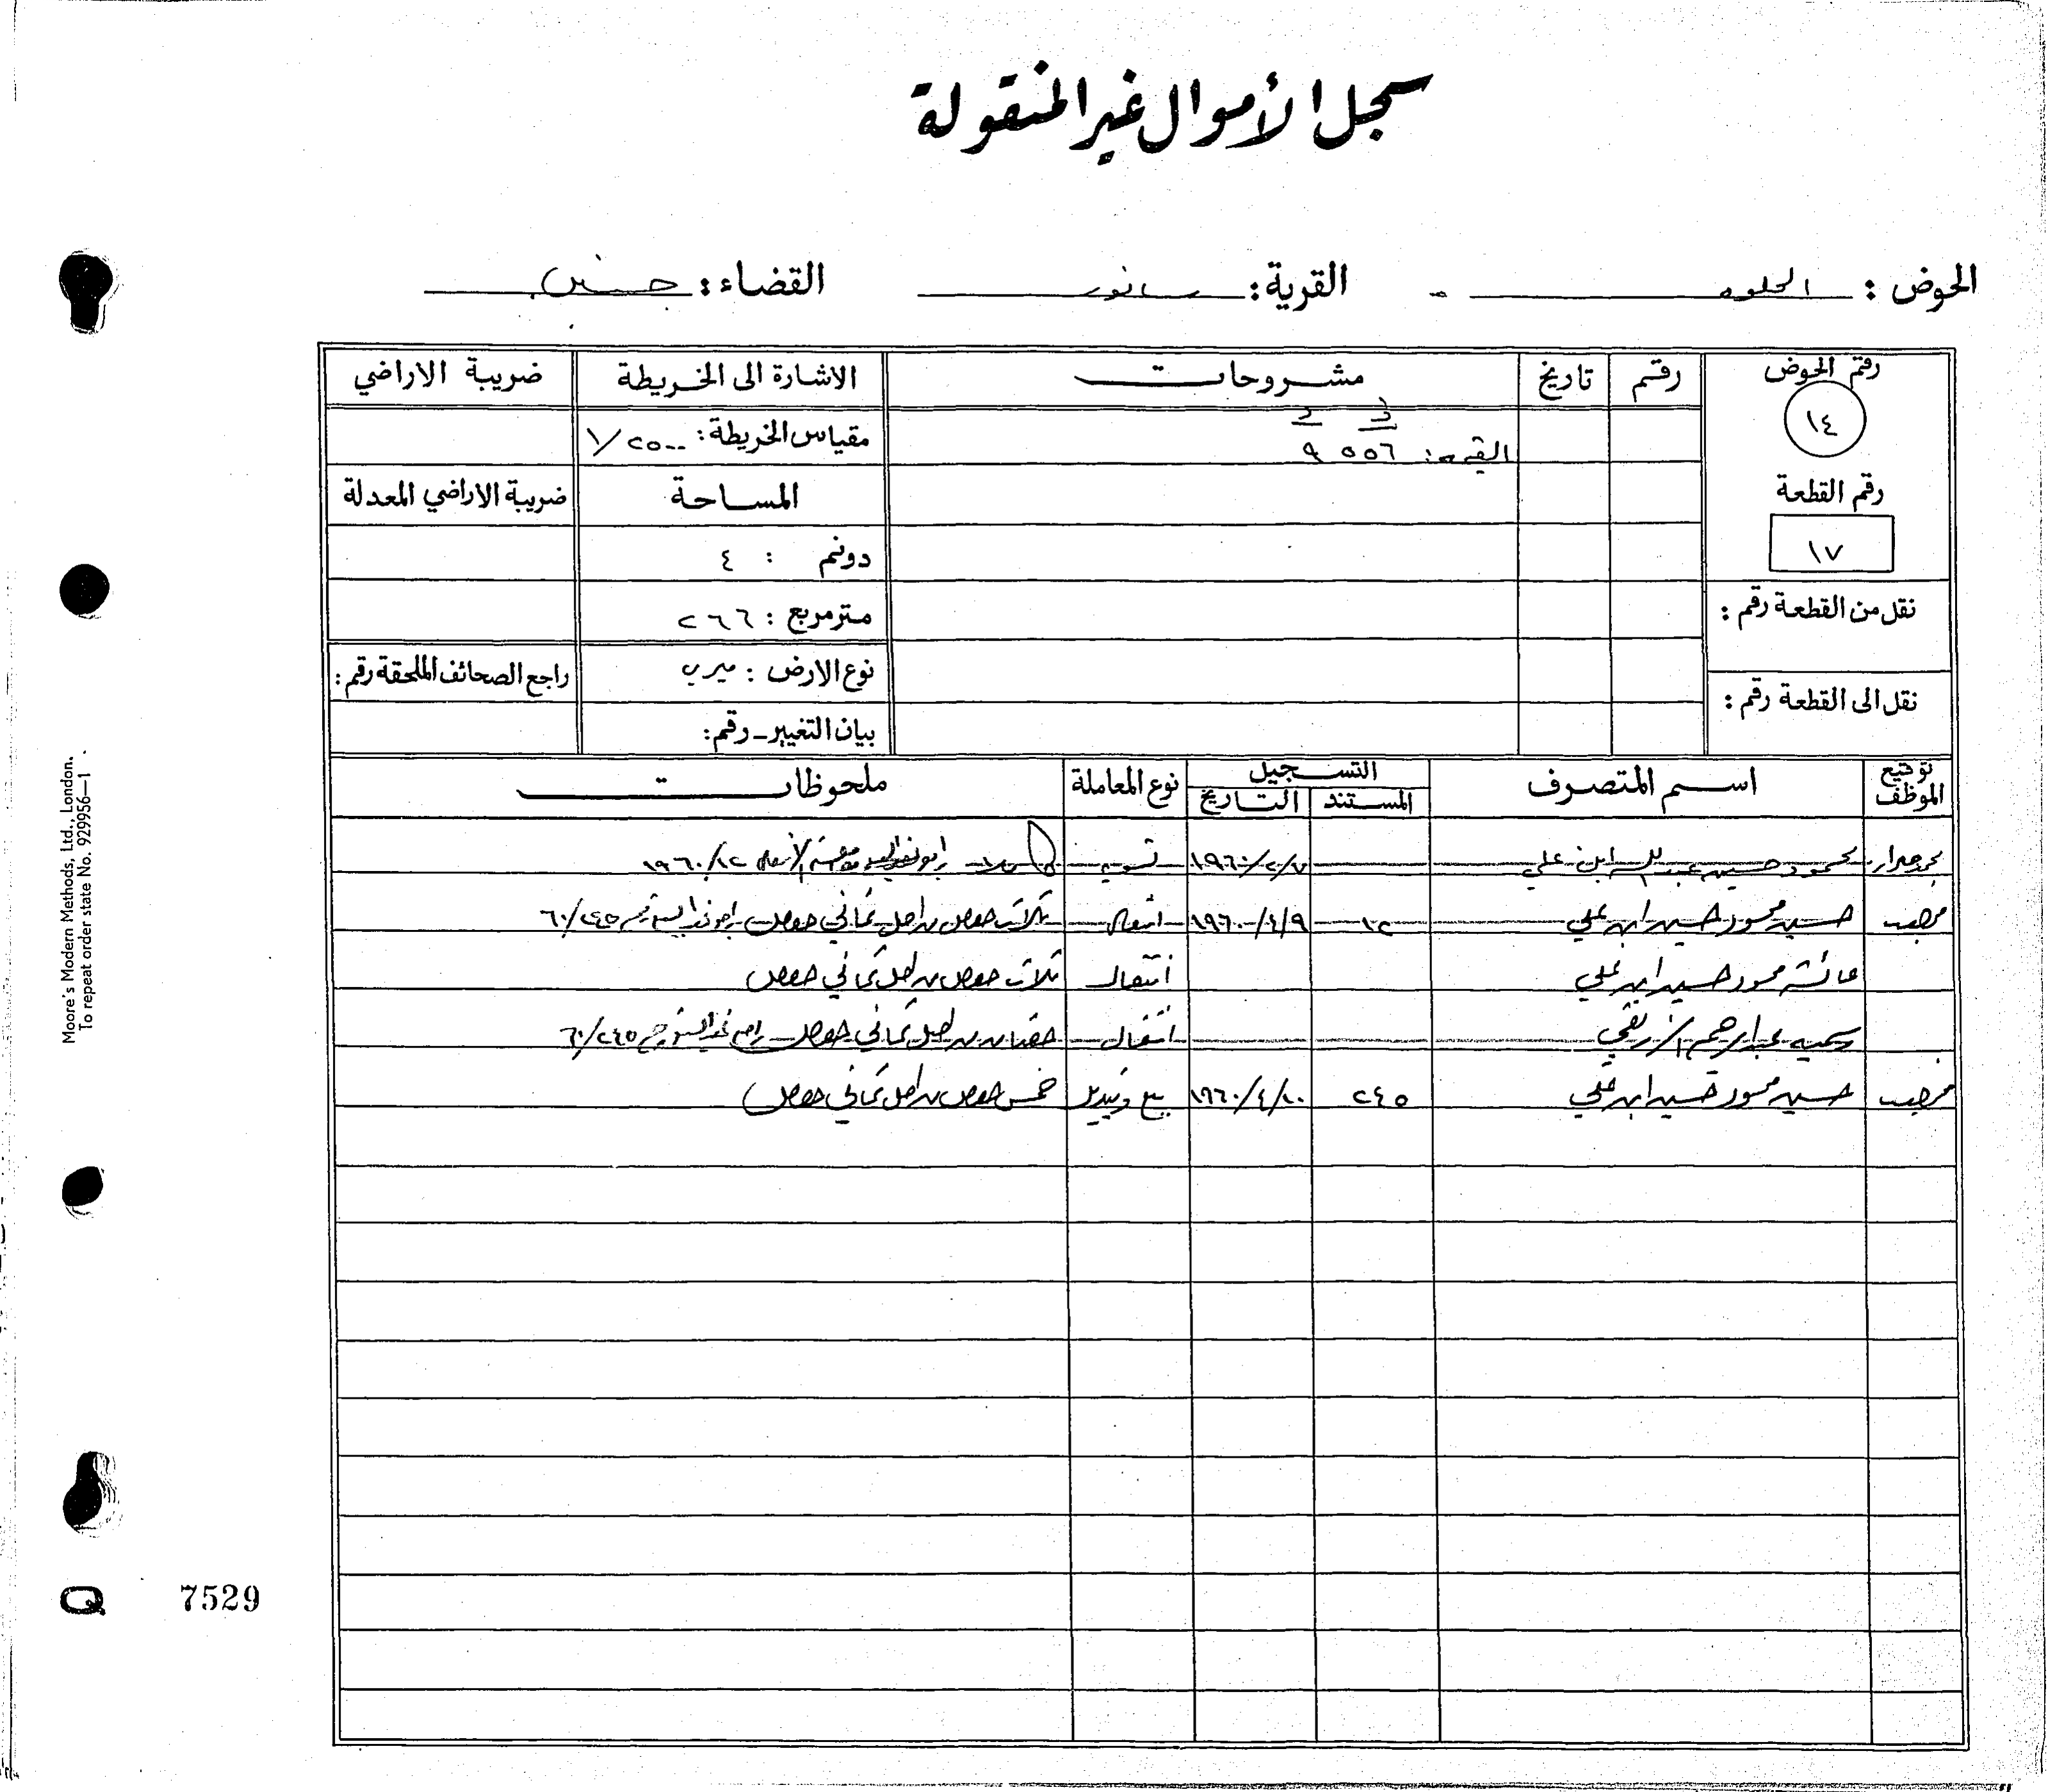 سجل الأموال غير المنقولة
الحوض : الحلوه القرية : سانور القضاء : جنين
رقم الحوض رقم تاريخ مشروحات الاشارة الى الخريطة ضريبة الاراضي
١٤
القيمه : ٥٥٦ ٩ مقياس الخريطة : ١/٢٥٠٠
رقم القطعة المساحة ضريبة الاراضي المعدلة
١٧ دونم : ٤
نقل من القطعة رقم : متر مربع : ٢٦٦
نوع الارض : ميري راجع الصحائف الملحقة رقم :
نقل الى القطعة رقم :
بيان التغيير - رقم :
توقيع الموظف اسم المتصرف التسجيل نوع المعاملة ملحوظات
المستند التاريخ
محمود حسين عبد الله ابن علي ١٩٦٠/٢/٧ تسويه ١٩٦٠/١٢
حسين محمود حسين ابن علي ١٢ ١٩٦٠/٤/٩ انتقال ثلاث حصص من اصل ثماني حصص ٦٠/٢٤٥
عائشه محمود حسين ابن علي انتقال ثلاث حصص من اصل ثماني حصص
عبد الرحيم انتقال حصتان من اصل ثماني حصص ٦٠/٢٤٥
حسين محمود حسين ابن علي ٢٤٥ ١٩٦٠/٤/١٠ بيع خمس حصص من اصل ثماني حصص
Moore's Modern Methods, Ltd., London.
To repeat order state No. 929956—1
Q 7529